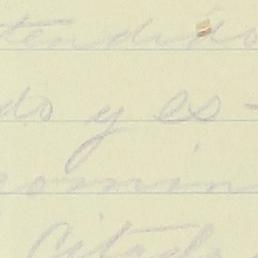 tendido
do y es-
omin
Citado